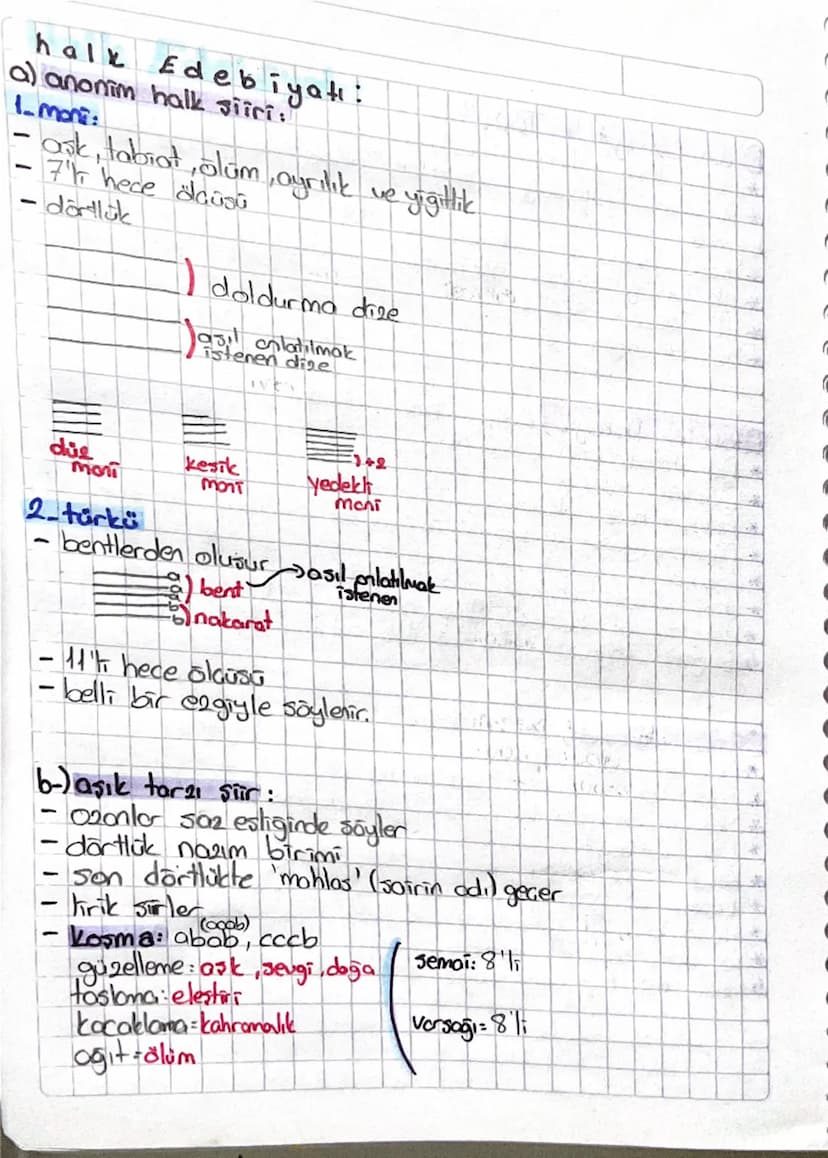 halk Edebiyatı:
a) anonim halk şiiri:
1- mani:
- aşk, tabiat, ölüm, ayrılık ve yiğitlik
- 7'li hece ölçüsü
- dörtlük
) doldurma dize
) asıl anlatılmak
istenen dize
düz
mani
kesik
mani
)+2
yedekli
mani
2- türkü
- bentlerden oluşur → asıl anlatılmak
istenen
a
a ) bent
a
b
b ) nakarat
- 11'li hece ölçüsü
- belli bir ezgiyle söylenir.
b-) aşık tarzı şiir:
- ozanlar saz eşliğinde söyler
- dörtlük nazım birimi
- son dörtlükte 'mahlas' (şairin adı) geçer
- lirik şiirler
(aaab)
- koşma: abab, cccb
güzelleme: aşk, sevgi, doğa
taşlama: eleştiri
koçaklama = kahramalık
ağıt = ölüm
semai: 8'li
varsağı = 8'li